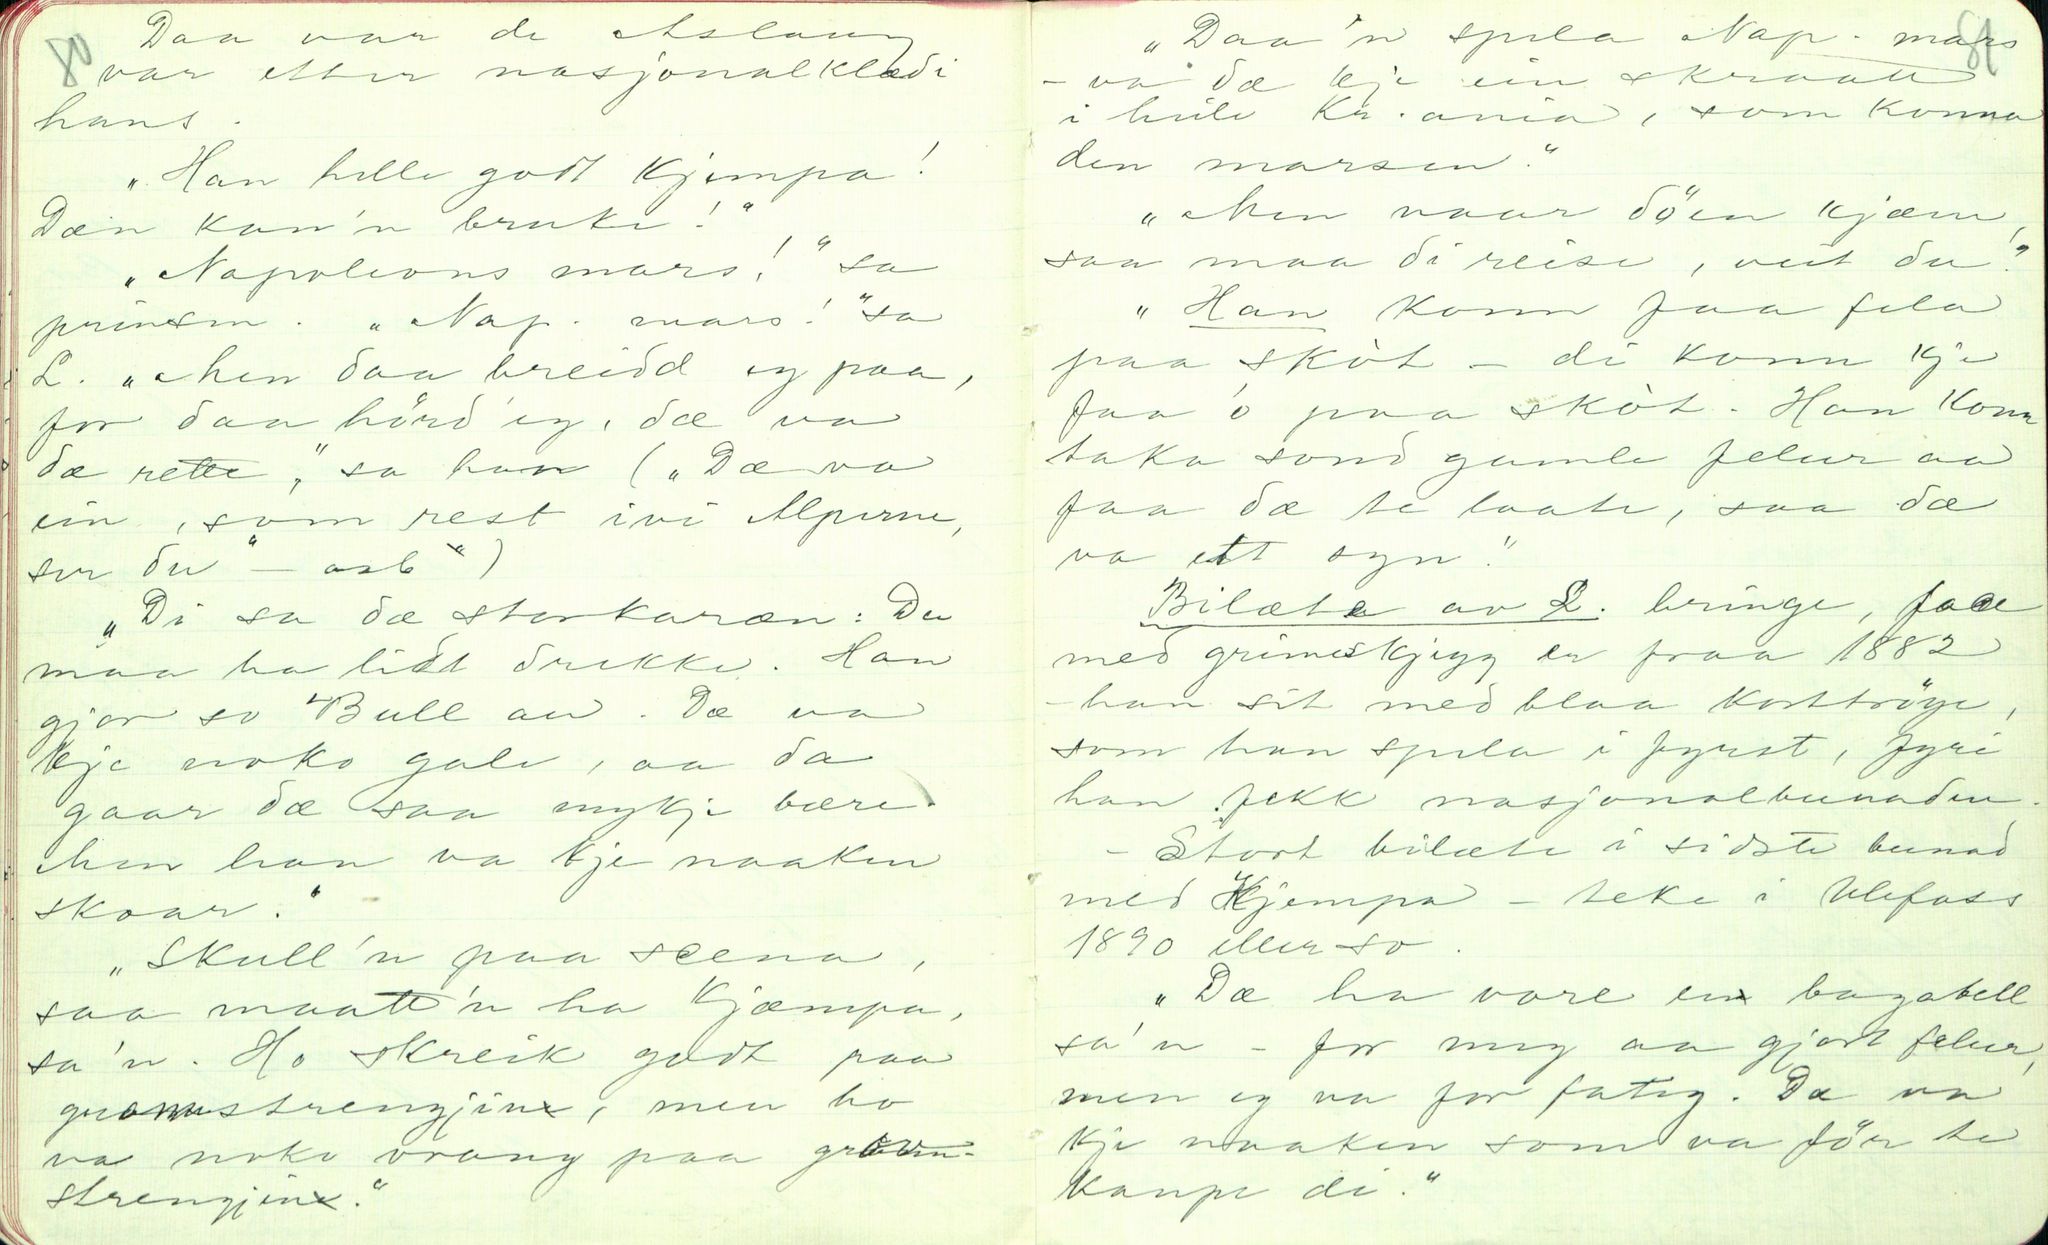 80
Daa var de Aslaug
var etter nasjonalklædi
hans.
„Han helle godt Kjempa!
Dæn kan'n bruke!"
„Napoleons mars!" sa
prinsen. „Nap. mars!" sa
L. „Men daa breidd eg paa,
for daa hörd'eg, dæ va
dæ rette," sa han („Dæ va
ein, som rest ivi Alperne,
ser du" – asb")
„Di sa dæ storkaræn: Du
maa ha lidt drikke. Han
gjor so Bull au. Dæ va
kje noko gale, aa da
gaar dæ saa mykji bære.
Men han va kje naaken
skoar."
„Skull'n paa scena,
saa maatte'n ha Kjæmpa,
sa'n. Ho skreik godt paa
strengjine, men ho
va noko vrang paa
strengjine."
81
„Daa'n spela Nap. mars
– va dæ kje ein skraatt
i heile Kr.ania, som konna
den marsen."
„Men naar döen kjæm,
saa maa di reise, veit du!"
„Han konn faa fela
paa skòt – di konn kje
faa'o paa skòt. Han konn
taka sond gamle felur aa
faa dæ te laate, saa dæ
va ett syn."
Bilæte av L. bringe, face
med grimeskjegg er fraa 1882
– han sit med blaa korttröye,
som han spela i fyrst, fyri
han fekk nasjonalbunaden.
– Stort bilæte i sidste bunad
med Kjempa – teke i Ulefoss
1890 eller so.
„Dæ ha vore ein bagatell
sa'n – for meg aa gjort felur,
men eg va for fatig. Dæ va
kje naaken som va för te
kaupe di."